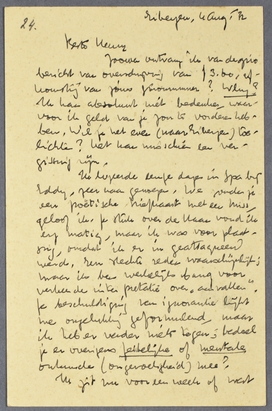 24.
Eibergen, 4 Aug '
Beste Henny
Zoowel ontvang ik van de giro
bericht van overschrijving van f 3.00, af-
komstig van jouw                    ?
Ik kan absoluut niet bedenken, waar-
voor ik geld van je zou te vorderen heb-
ben. Wil je het even (naar Eibergen) toe-
lichten? Het kan misschien een ver-
gissing zijn.
Ik logeerde eenige dagen in Spa bij
Eddy, zeer naar genoegen. We vonden je
een poëtische            met een mis-
geloof ik. Je stuk over de Haan vond ik
erg matig, maar ik was voor plaat-
sing, omdat ik er in geattaqueerd
werd, een slechte reden waarschijnlijk;
maar ik ben werkelijk bang voor
verkeerde interpretatie van „aanvallen”.
Je beschuldiging van ignorantie lijkt
me ongelukkig geformuleerd, maar
ik heb er verder niets tegen; bedoel
je er overigens feitelijke of mentale
                (ongevoeligheid) mee?
Ik zit nu voor een week of wat